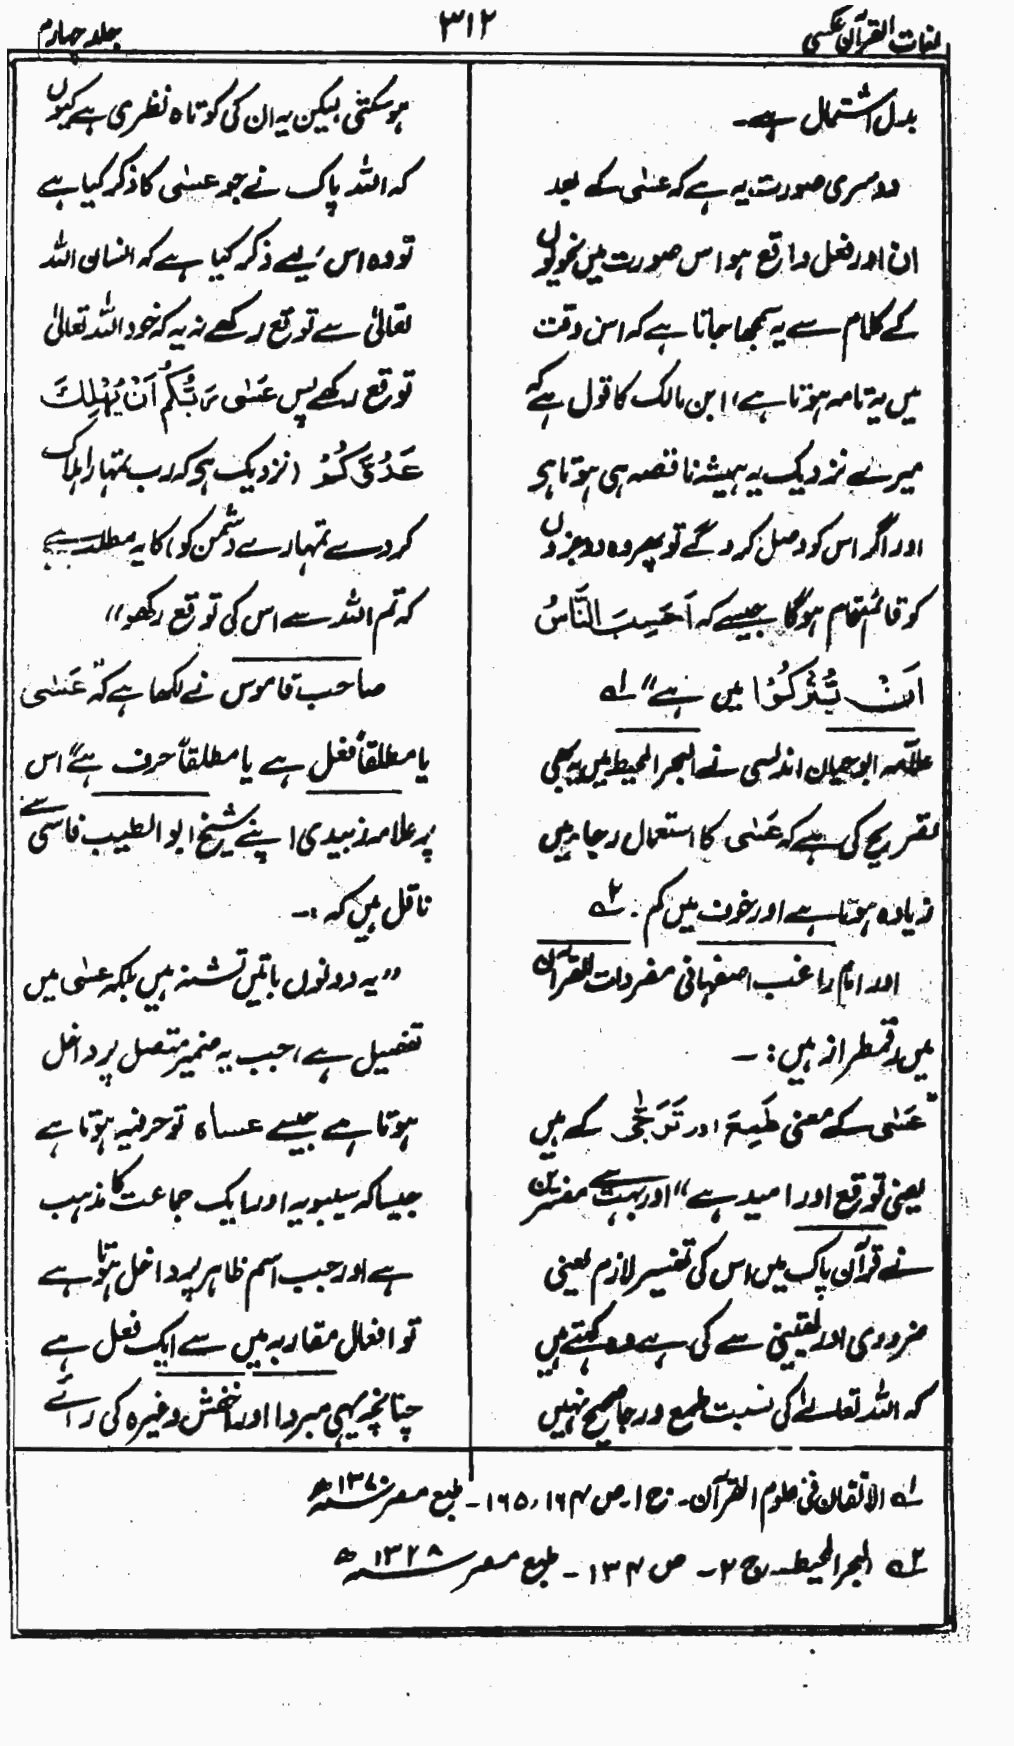 لغات القرآن عکسی
۳۱۲
جلد چہارم
بدل اشتمال ہے۔
دوسری صورت یہ ہے کہ عسٰی کے بعد
ان اور فعل واقع ہو اس صورت میں نحویوں
کے کلام سے یہ سمجھا جاتا ہے کہ اس وقت
میں یہ تامہ ہوتا ہے، ابن مالک کا قول ہے کہ
میرے نزدیک یہ ہمیشہ ناقصہ ہی ہوتا ہی
اور اگر اس کو وصل کر دگے تو پھر وہ دو جزوں
کو قائمقام ہوگا جیسے کہ اَحَسِبَ النَّاسُ
اَنْ یُّتْرَکُوْا میں ہے" لے
علامہ ابو حیان اندلسی نے البحر المحیط میں یہ بھی
تصریح کی ہے کہ عَسٰی کا استعمال رجا میں
زیادہ ہوتا ہے اور خوف میں کم ۔ ۲ے
اور امام راغب اصفہانی مفردات القرآن
میں رقمطراز ہیں :۔
"عَسٰی کے معنی طَمِعَ اور تَرَجّٰی کے ہیں
یعنی توقع اور امید ہے" اور بہت سے مفسرین
نے قرآن پاک میں اس کی تفسیر لازم یعنی
ضروری اور یقینی سے کی ہے وہ کہتے ہیں
کہ اللہ تعالےٰ کی نسبت طمع ورجا صحیح نہیں
ہوسکتی لیکن یہ ان کی کوتاہ نظری ہے کیوں
کہ اللہ پاک نے جو عسٰی کا ذکر کیا ہے
تو وہ اس لیے ذکر کیا ہے کہ انسان اللہ
تعالیٰ سے توقع رکھے نہ یہ کہ خود اللہ تعالیٰ
توقع رکھے پس عَسٰی رَبُّکُمْ اَنْ یُّهْلِكَ
عَدُوَّکُمْ (نزدیک ہی کہ رب تمہارا ہلاک
کردے تمہارے دشمن کو) کا یہ مطلب ہے
کہ تم اللہ سے اس کی توقع رکھو"
صاحب قاموس نے لکھا ہے کہ "عَسٰی
یا مطلقاً فعل ہے یا مطلقاً حرف ہے" اس
پر علامہ زبیدی اپنے شیخ ابو الطیب فاسی سے
ناقل ہیں کہ :۔
"یہ دونوں باتیں تشنہ ہیں بلکہ عسٰی میں
تفصیل ہے، جب یہ ضمیر متصل پر داخل
ہوتا ہے جیسے عساہ تو حرفیہ ہوتا ہے
جیسا کہ سیبویہ اور ایک جماعت کا مذہب
ہے اور جب اسم ظاہر پر داخل ہوتا ہے
تو افعال مقاربہ میں سے ایک فعل ہے
چنانچہ یہی مبرد اور اخفش وغیرہ کی رائے
لے الاتقان فی علوم القرآن۔ ج ۱۔ ص ۱۶۴، ۱۶۵ ۔ طبع مصر
۲ے البحر المحیط۔ ج ۲ ۔ ص ۱۳۴ ۔ طبع مصر ۱۳۲۸ھ